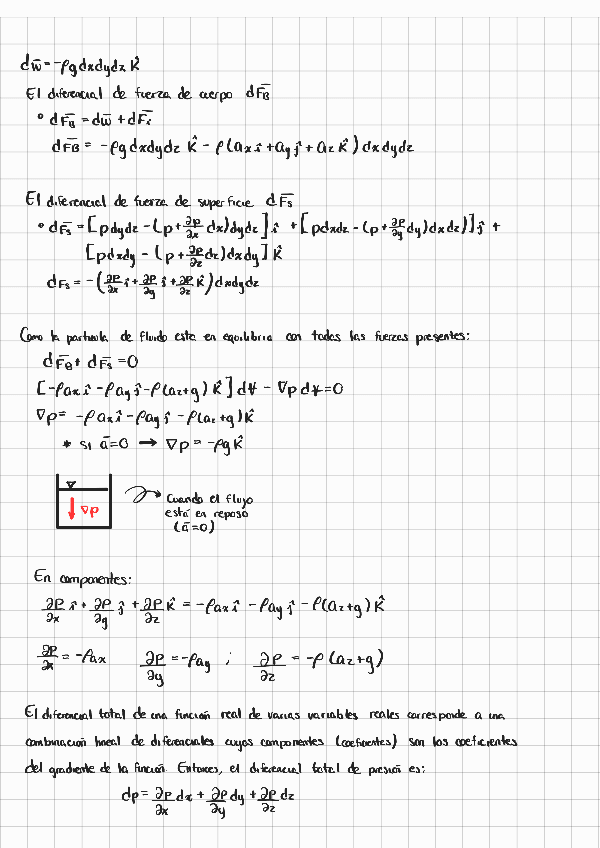 dw̄ = -ρg dxdydz k̂
El diferencial de fuerza de cuerpo dF̄B
° dF̄B = dw̄ + dF̄i
dF̄B = -ρg dxdydz k̂ - ρ(ax î + ay ĵ + az k̂) dxdydz
El diferencial de fuerza de superficie dF̄s
° dF̄s = [pdydz - (p + ∂p/∂x dx)dydz] î + [pdxdz - (p + ∂p/∂y dy)dxdz)] ĵ +
[pdxdy - (p + ∂p/∂z dz)dxdy] k̂
dFs = -(∂p/∂x î + ∂p/∂y ĵ + ∂p/∂z k̂) dxdydz
Como la partícula de fluido esta en equilibrio con todas las fuerzas presentes:
dF̄B + dF̄s = 0
[-ρax î - ρay ĵ - ρ(az+g) k̂] dV - ∇p dV = 0
∇p = -ρax î - ρay ĵ - ρ(az+g) k̂
* si ā=0 → ∇p = -ρg k̂
∇p
Cuando el flujo
está en reposo
(ā=0)
En componentes:
∂p/∂x î + ∂p/∂y ĵ + ∂p/∂z k̂ = -ρax î - ρay ĵ - ρ(az+g) k̂
∂p/∂x = -ρax ∂p/∂y = -ρay ; ∂p/∂z = -ρ(az+g)
El diferencial total de una función real de varias variables reales corresponde a una
combinación lineal de diferenciales cuyos componentes (coeficientes) son los coeficientes
del gradiente de la función. Entonces, el diferencial total de presión es:
dp = ∂p/∂x dx + ∂p/∂y dy + ∂p/∂z dz